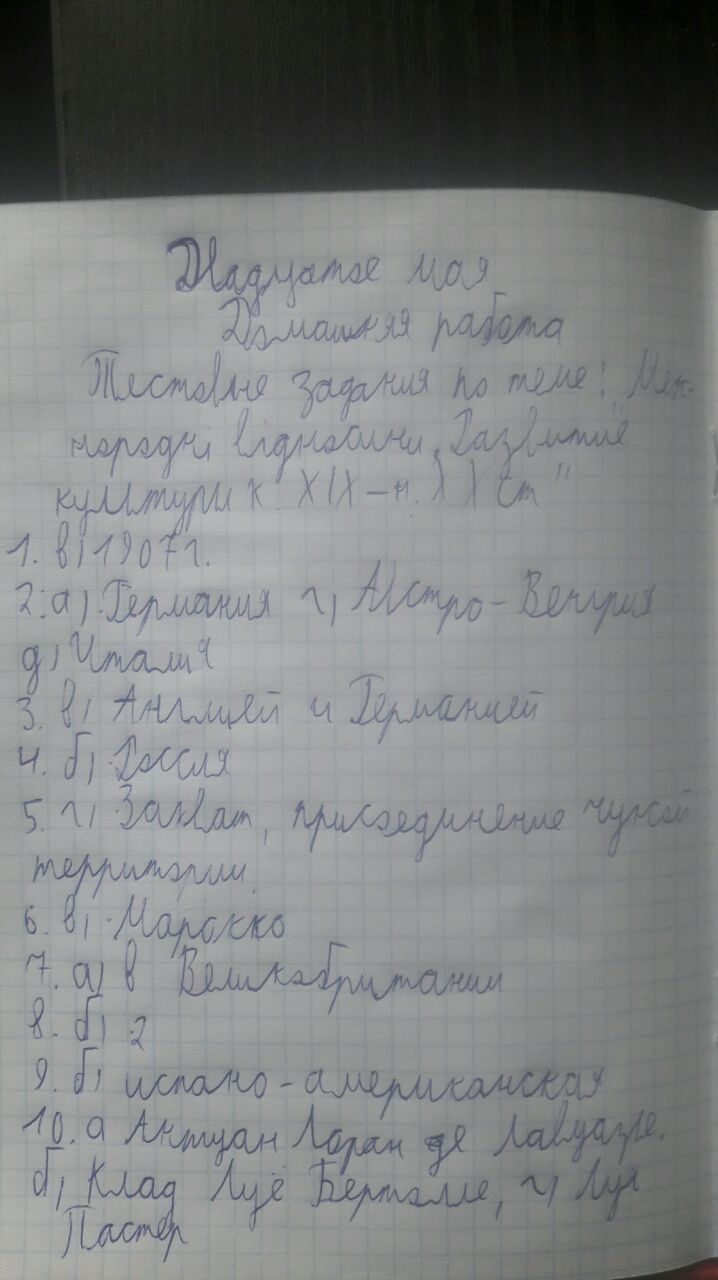 Двадцатое мая
Домашняя работа
Тестовые задания по теме: "Меж-
народні відносини. Развитие
культуры к. XIX – н. XX ст"
1. в) 1907 г.
2. а) Германия г) Австро-Венгрия
д) Италия
3. в) Англией и Германией
4. б) Россия
5. г) Захват, присоединение чужой
территории.
6. в) Марокко
7. а) в Великобритании
8. б) 2
9. б) испано-американская
10. а Антуан Лоран де Лавуазье.
б) Клад Луё Бертолле, г) Луи
Пастер